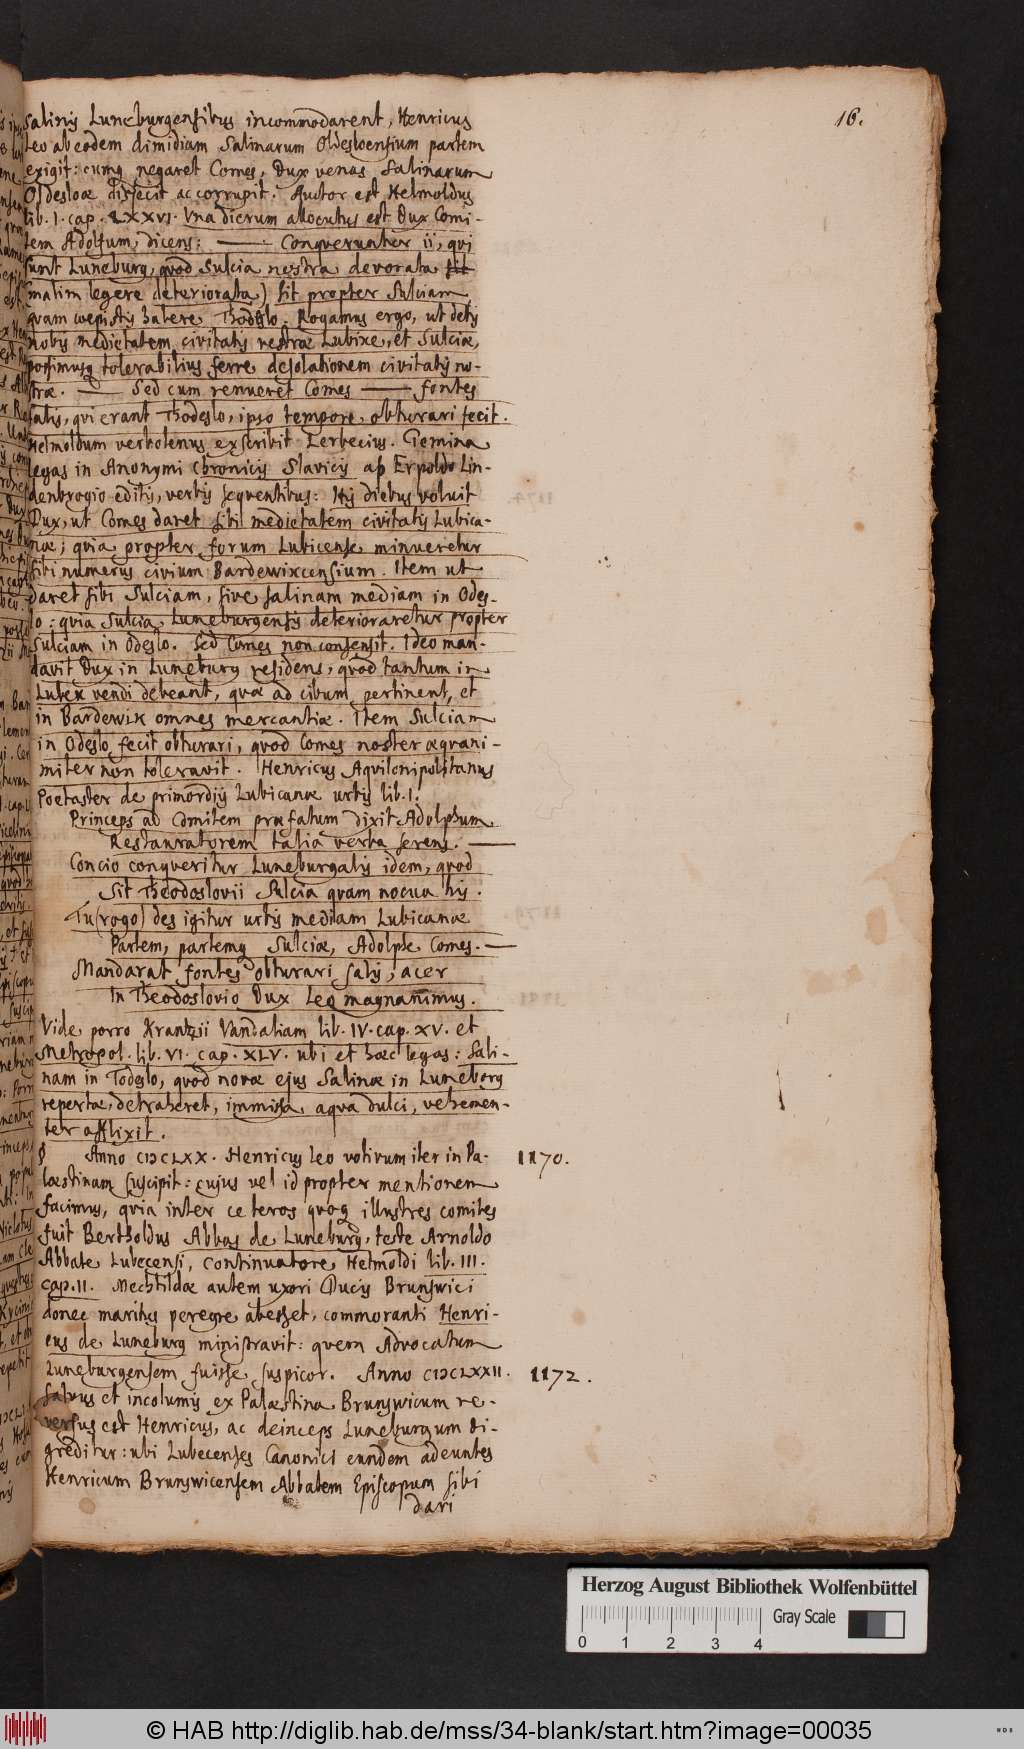 16.
Salinis Luneburgensibus incommodarent, Henricus
Leo ab eodem dimidiam Salinarum Oldesloensium partem
exigit: cumq negaret Comes, Dux venas Salinarum
Oldesloæ disjecit ac corrupit. Auctor est Helmoldus
lib. I. cap. LXXVI. Una dierum allocutus est Dux Comi-
tem Adolfum, dicens: —— Conqveruntur ii, qvi
sunt Luneburg, qvod Sulcia nostra devorata sit
(malim legere deteriorata) sit propter Sulciam
qvam coepistis habere Thodeslo. Rogamus ergo, ut detis
nobis medietatem civitatis vestræ Lubike, et Sulciæ,
possimusq tolerabilius ferre desolationem civitatis no-
stræ. —— Sed cum renueret Comes —— fontes
salis, qvi erant Thodeslo, ipso tempore obturari fecit.
Helmoldum verbotenus exscribit Lerbecius. Gemina
legas in Anonymi Chronicis Slavicis ab Erpoldo Lin-
denbrogio editis, verbis seqventibus: His diebus voluit
Dux, ut Comes daret sibi medietatem civitatis Lubica-
næ; qvia propter forum Lubicense minueretur
sibi numerus civium Bardewixcensium. Item ut
daret sibi Sulciam, sive salinam mediam in Odes-
lo: qvia Sulcia Luneburgensis deterioraretur propter
Sulciam in Odeslo. Sed Comes non consensit. Ideo man-
davit Dux in Luneburg residens, qvod tantum in
Lubek vendi debeant, qvæ ad cibum pertinent, et
in Bardewik omnes mercantiæ. Item Sulciam
in Odeslo fecit obturari, qvod Comes noster æqvani-
miter non toleravit. Henricus Aqvilonipolitanus
Poetaster de primordiis Lubicanæ urbis lib. I.
Princeps ad Comitem præfatum dixit Adolphum
Restauratorem talia verba serens. ——
Concio conqveritur Luneburgalis idem, qvod
Sit Theodoslovii Sulcia qvam nocua his.
Tu (rogo) des igitur urbis mediam Lubicanæ
Partem, partemq Sulciæ, Adolphe Comes. ——
Mandarat fontes obturari salis, acer
In Theodoslovio Dux Leo magnanimus.
Vide porro Krantzii Vandaliam lib. IV. cap. XV. et
Metropol. lib. VI. cap. XLV. ubi et hæc legas: Sali-
nam in Todeslo, qvod novæ ejus Salinæ in Luneborg
repertæ, detraheret, immissa aqva dulci, vehemen-
ter afflixit.
§ Anno CIƆCLXX. Henricus Leo votivum iter in Pa-
læstinam suscipit: cujus vel id propter mentionem
facimus, qvia inter ceteros qvoq illustres comites
fuit Bertholdus Abbas de Luneburg, teste Arnoldo
Abbate Lubecensi, continuatore Helmoldi lib. III.
cap. II. Mechtildæ autem uxori Ducis Brunswici
donec maritus peregre abesset, commoranti Henri-
cus de Luneburg ministravit: qvem Advocatum
Luneburgensem fuisse suspicor. Anno CIƆCLXXII.
salvus et incolumis ex Palæstina Brunswicum re-
versus est Henricus, ac deinceps Luneburgum di-
greditur: ubi Lubecenses Canonici eundem adeuntes
Henricum Brunswicensem Abbatem Episcopum sibi
dari
1170.
1172.
Herzog August Bibliothek Wolfenbüttel
Gray Scale
0 1 2 3 4
© HAB http://diglib.hab.de/mss/34-blank/start.htm?image=00035